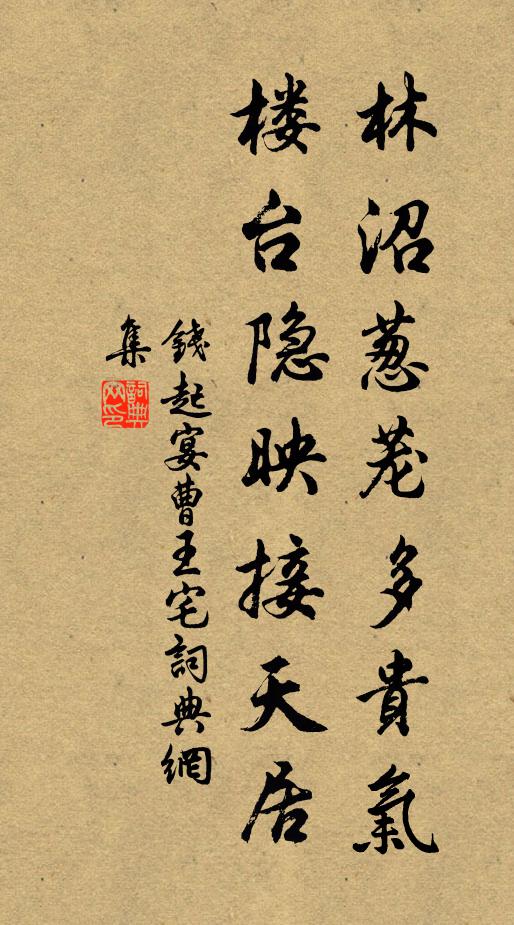 林沼葱茏多貴氣
楼台隐映接天居
錢起宴曹王宅詞典網
集
詞典网印